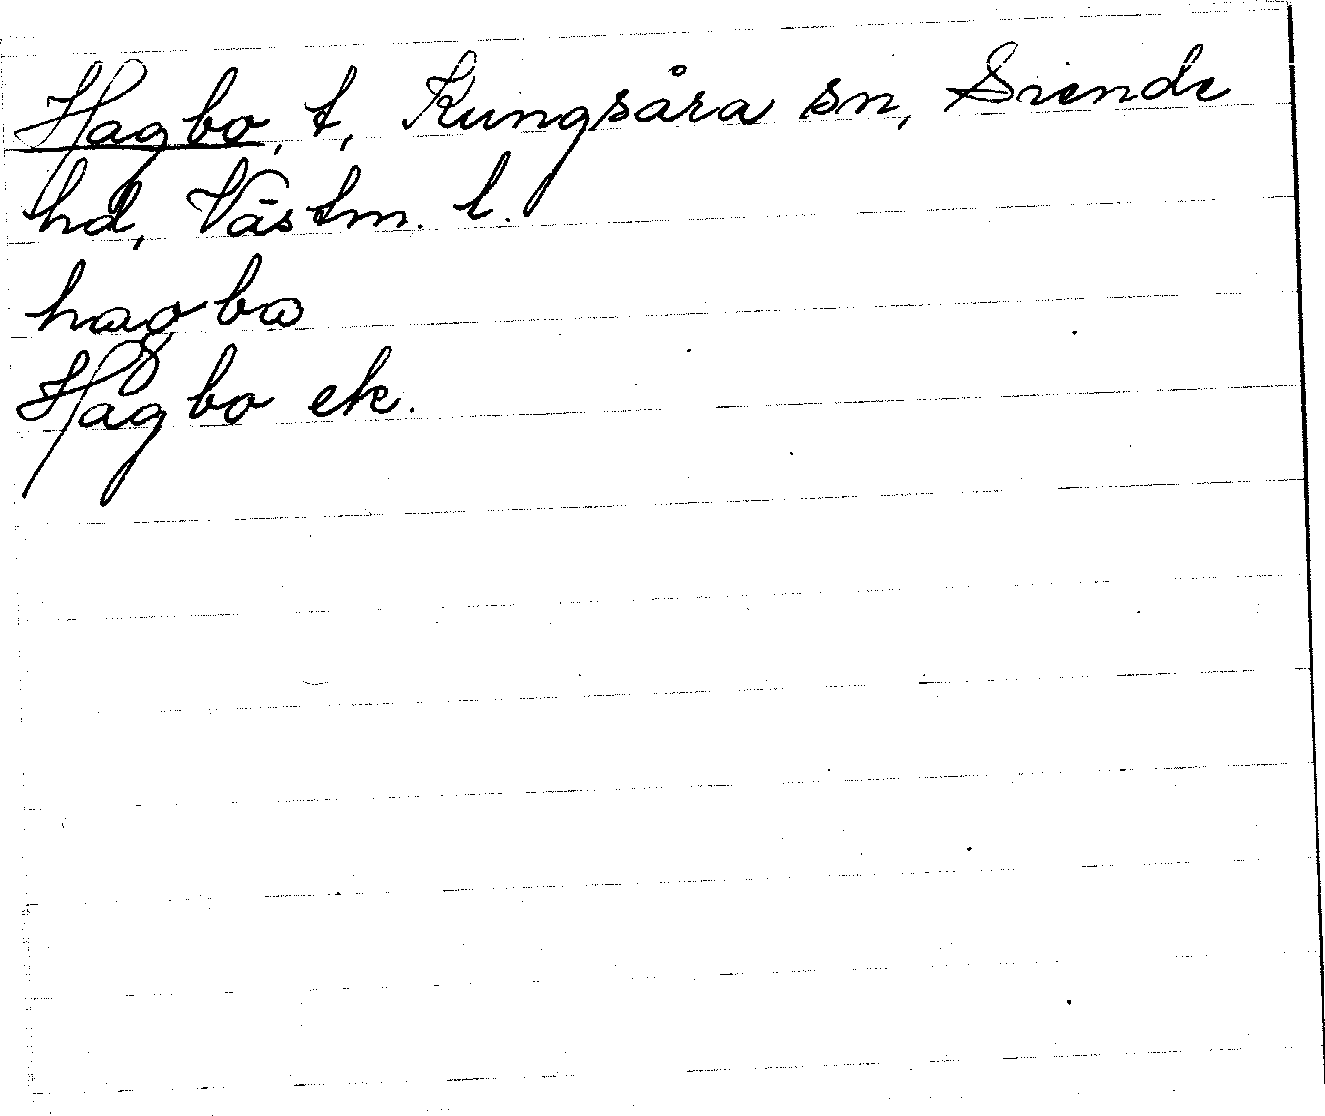 Hagbo, t, Kungsåra sn, Siende
hd, Västm. l.
hagbω
Hagbo ek.